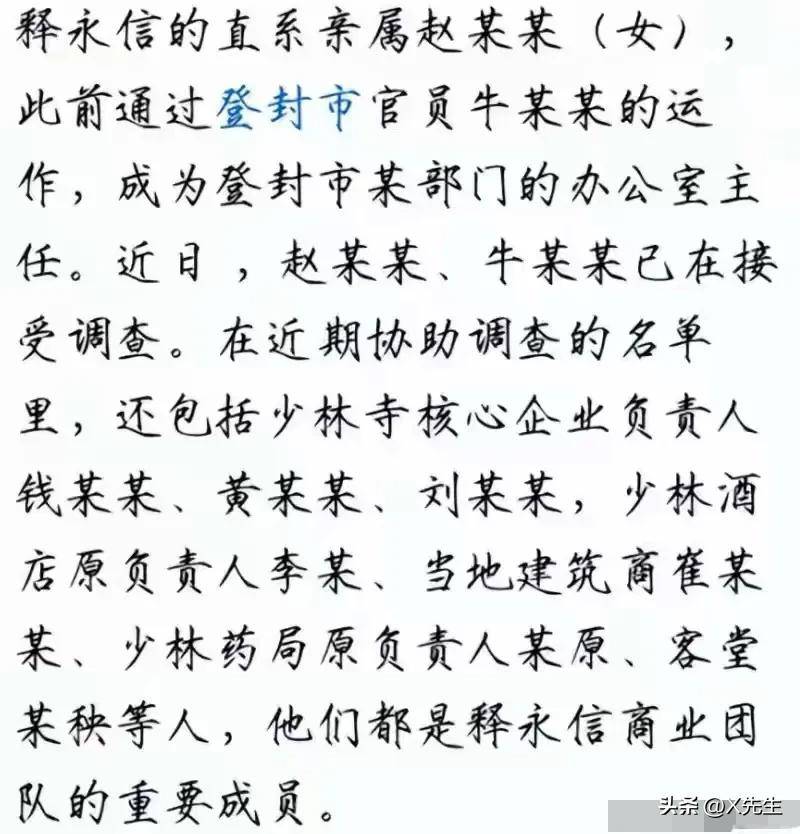 释永信的直系亲属赵某某（女），
此前通过登封市官员牛某某的运
作，成为登封市某部门的办公室主
任。近日，赵某某、牛某某已在接
受调查。在近期协助调查的名单
里，还包括少林寺核心企业负责人
钱某某、黄某某、刘某某，少林酒
店原负责人李某、当地建筑商崔某
某、少林药局原负责人某原、客堂
某秧等人，他们都是释永信商业团
队的重要成员。
头条 @X先生